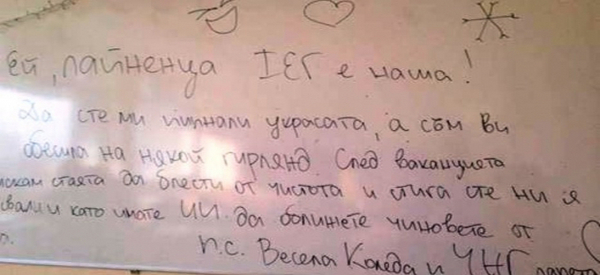 ей, лайненца IЕГ е наша!
Да сте ми пипнали украсата, а съм ви
обесила на някой гирлянд. След ваканцията
искам стаята да блести от чистота и стига сте ни я
като имате ЧИ. да ближете чиновете от
п.с. Весела Коледа и ЧНГ